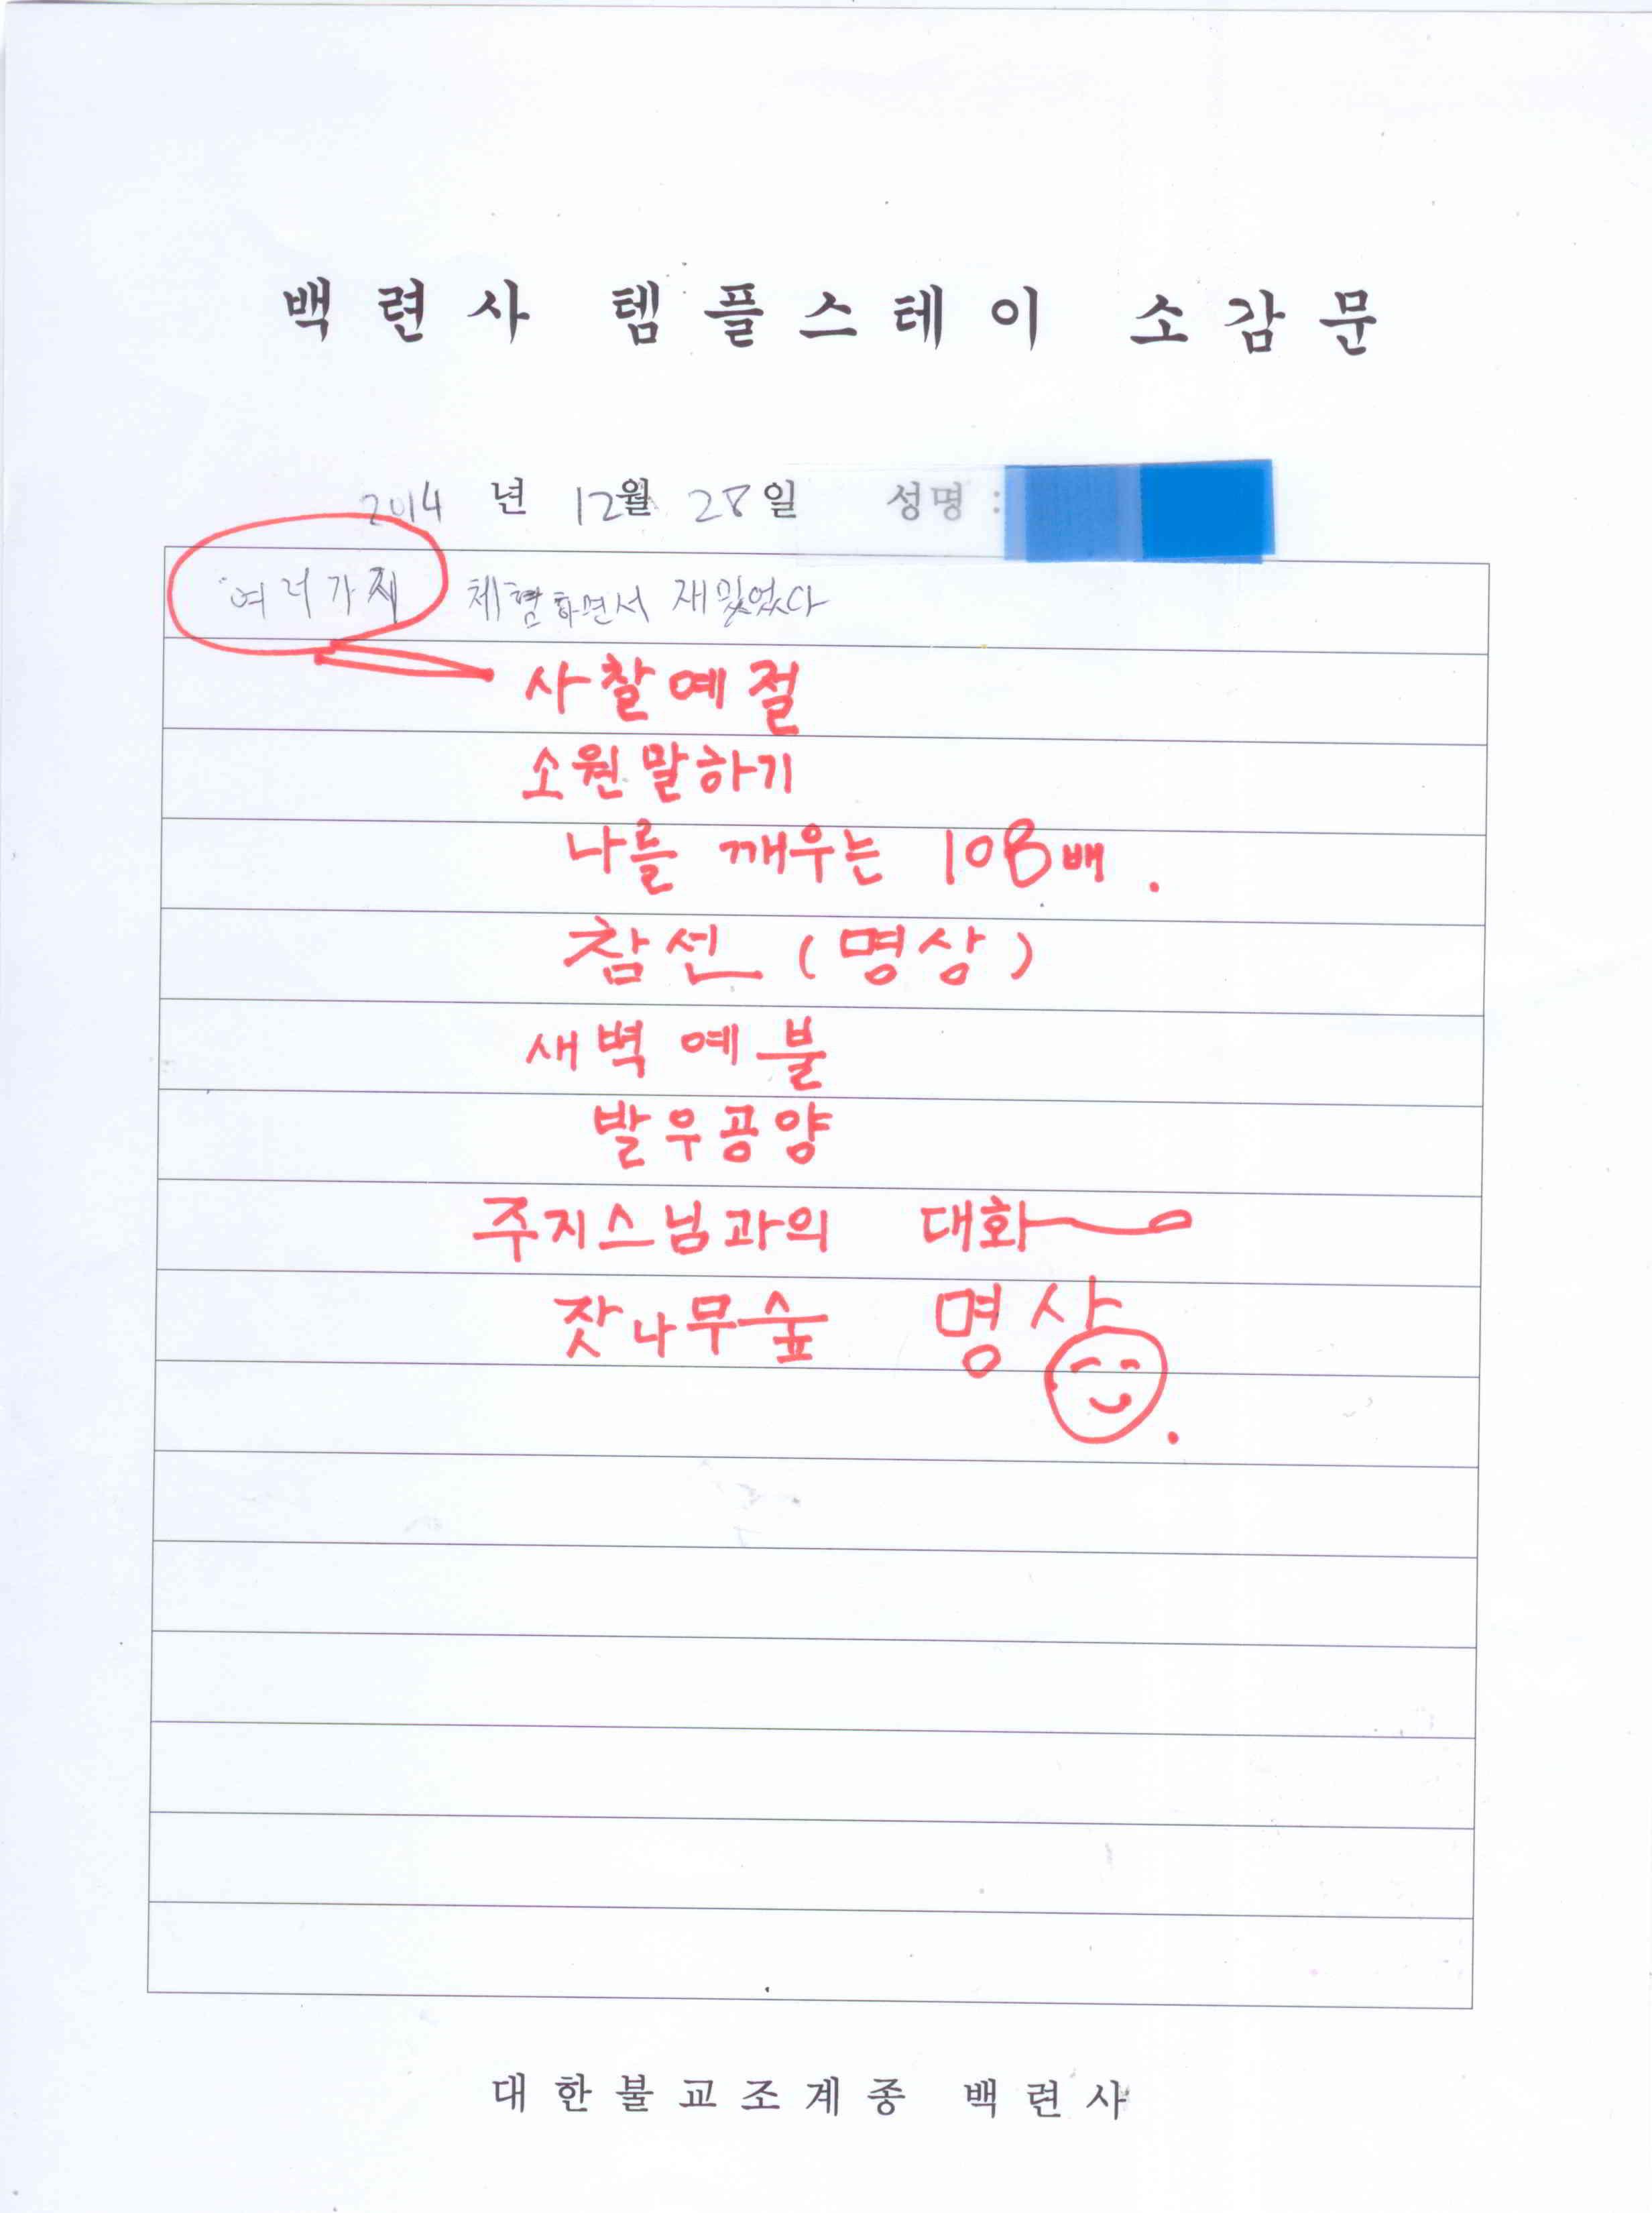 백련사 템플스테이 소감문
2014 년 12월 28일 성명 :
여러가지 체험하면서 재밌었다
사찰예절
소원 말하기
나를 깨우는 108배.
참선 (명상)
새벽 예불
발우공양
주지스님과의 대화
잣나무숲 명상
대한불교조계종 백련사